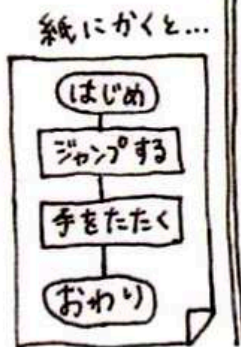 紙にかくと...
はじめ
ジャンプする
手をたたく
おわり